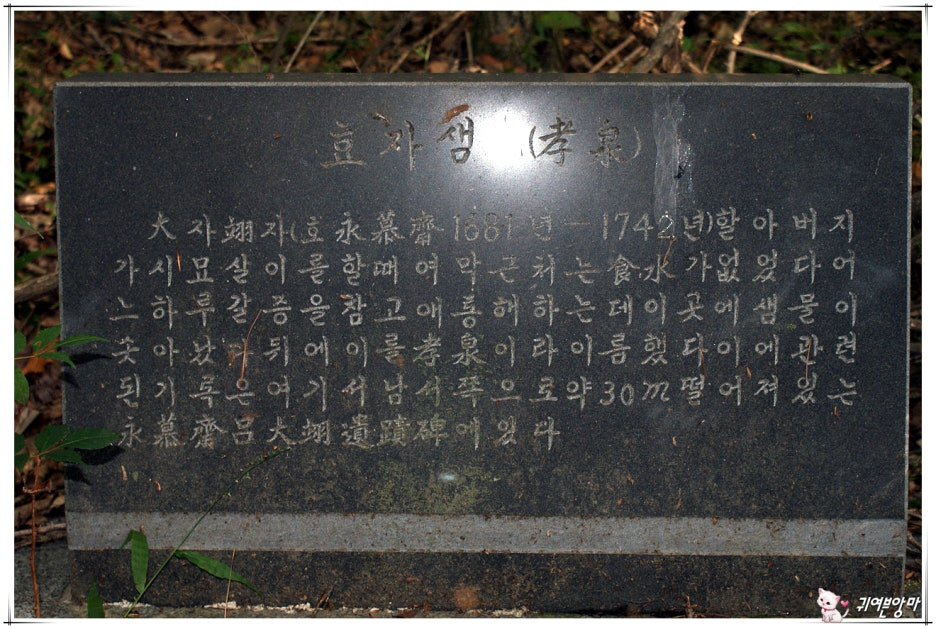 효자샘 (孝泉)
大자翊자(호永慕齋 1681년-1742년)할아버지
가시묘살이를할때여막근처는食水가없었다어
느하루갈증을참고애통해하는데이곳에샘물이
솟아났다뒤에이를孝泉이라이름했다이에관련
된기록은여기서남서쪽으로약30m떨어져있는
永慕齋呂大翊遺蹟碑에있다
귀여븐앙마